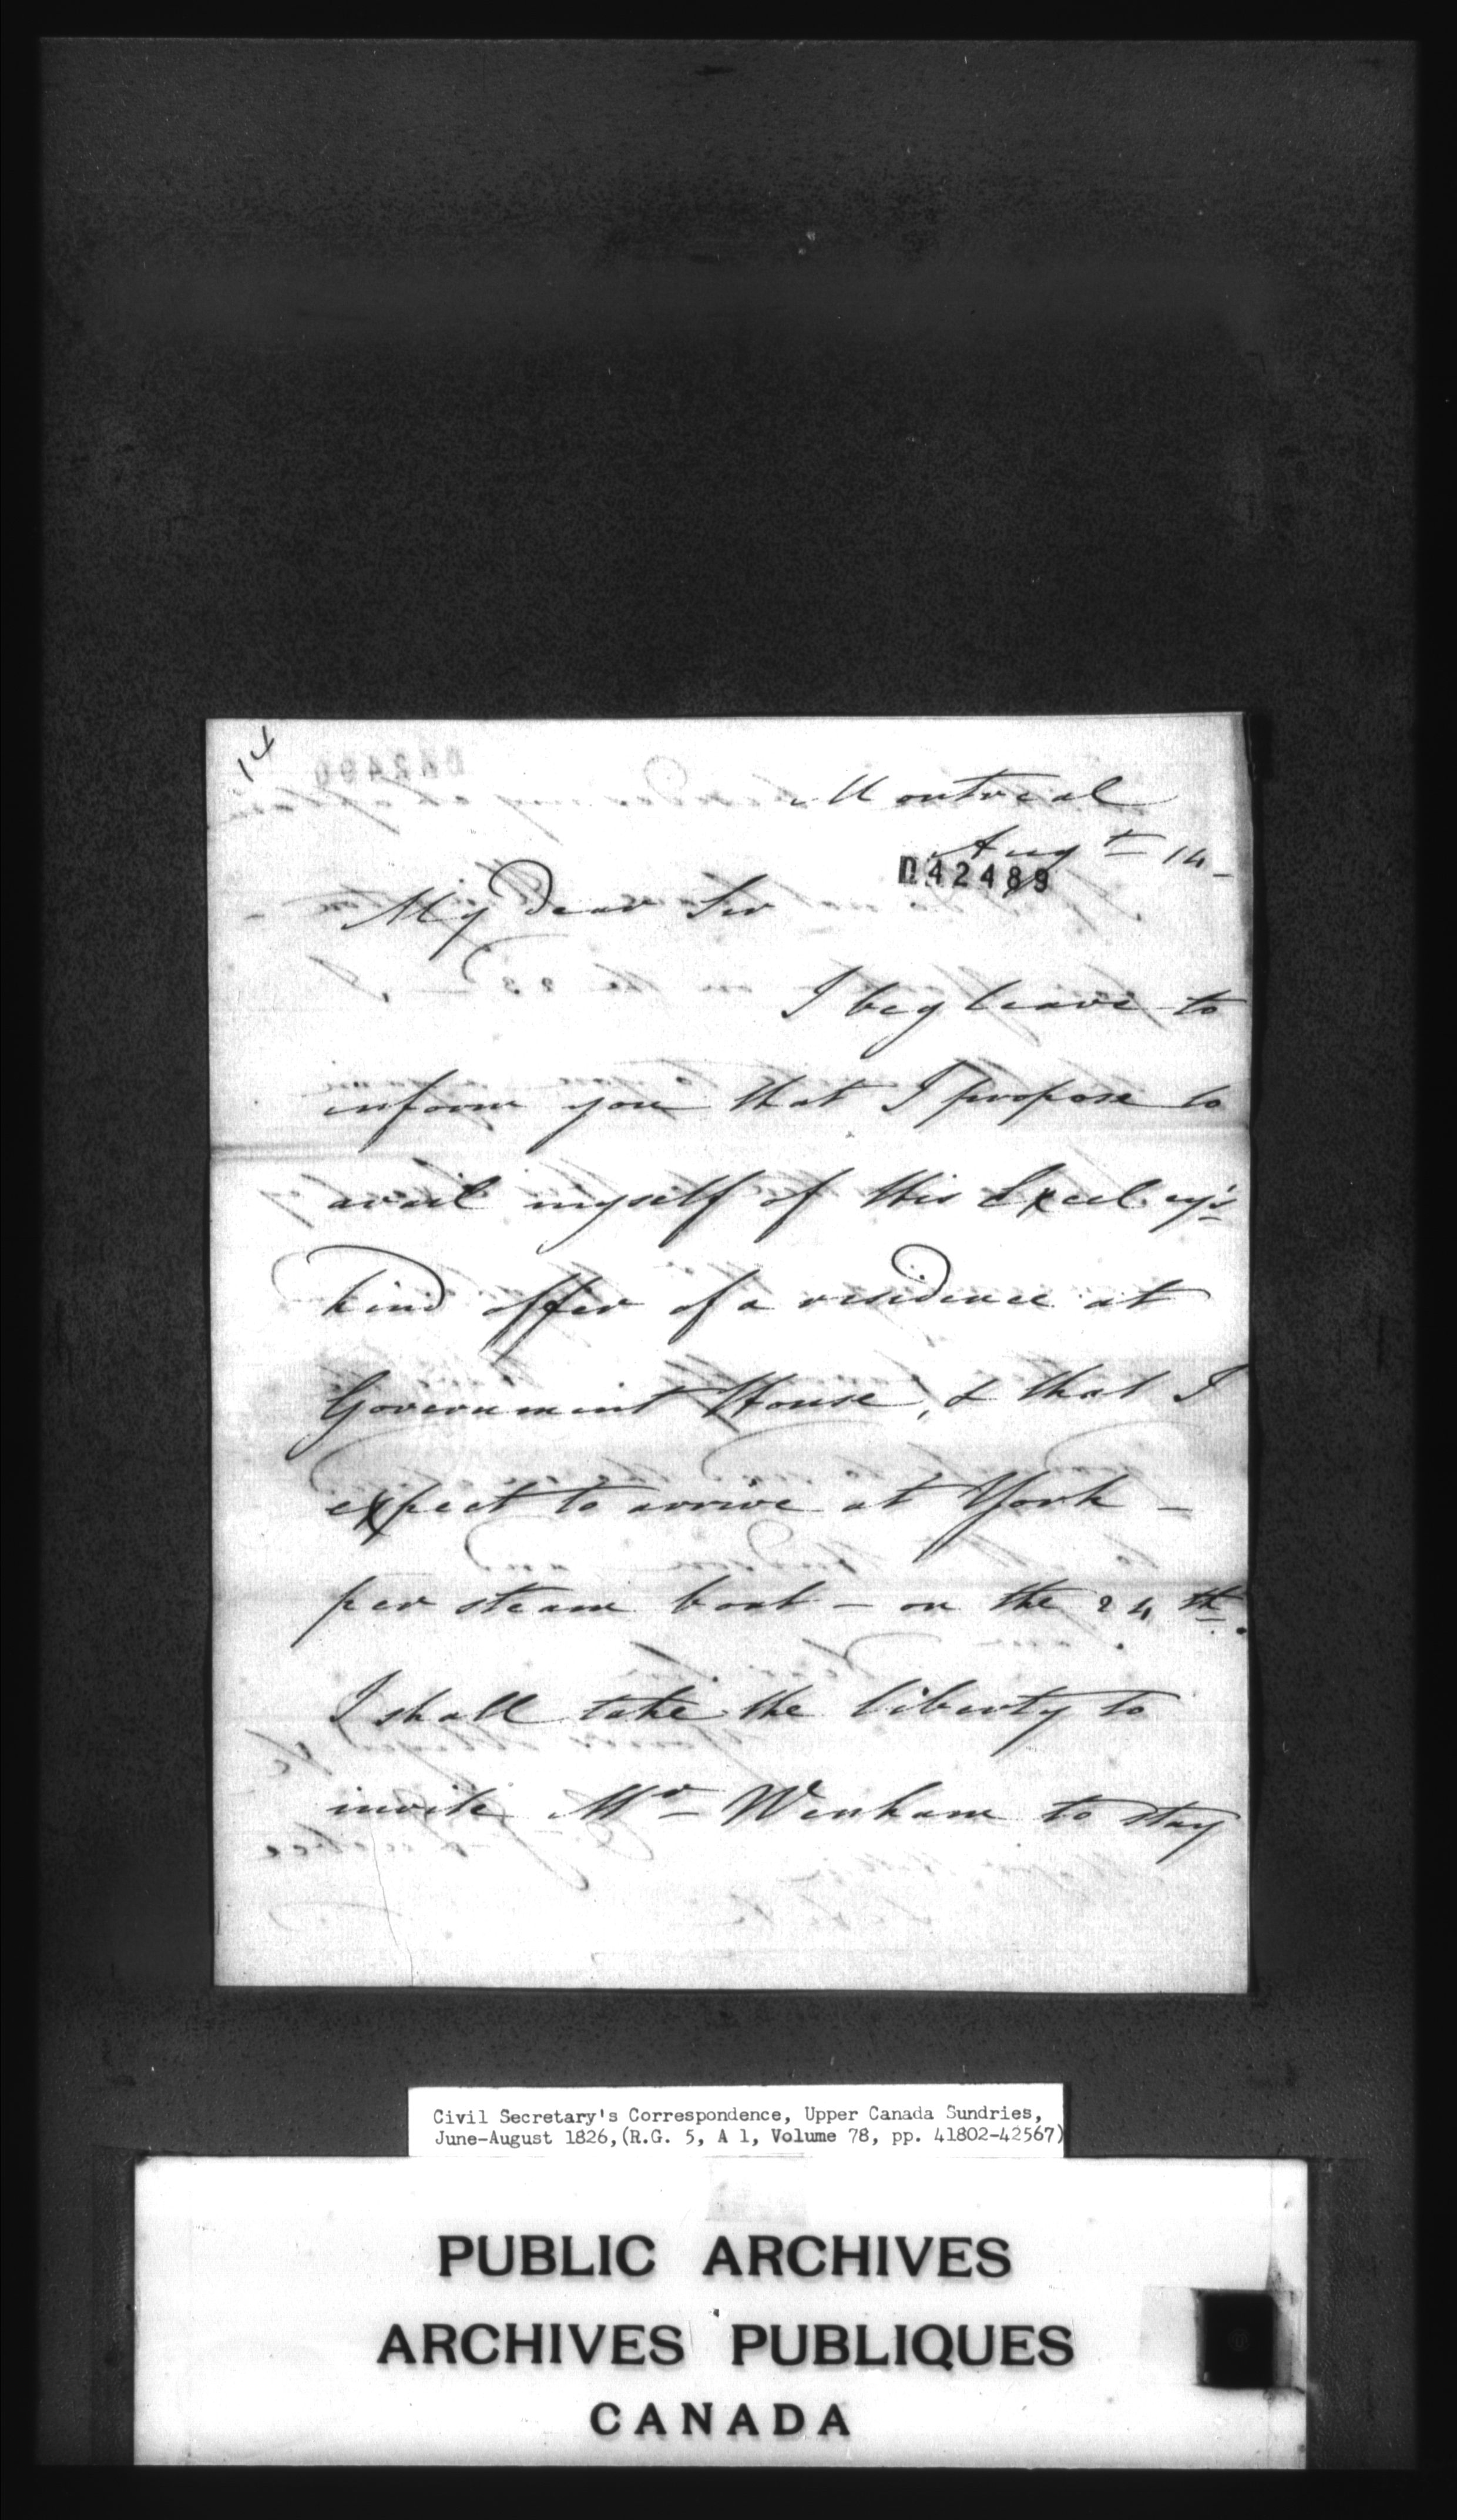 14
Montreal
Augt 14 -
D42489
My Dear Sir
I beg leave to
inform you that I propose to
avail myself of His Excelcy's
kind offer of a residence at
Government House, & that I
expect to arrive at York -
per steam boat - on the 24th.
I shall take the liberty to
invite Mr Wenham to stay
Civil Secretary's Correspondence, Upper Canada Sundries,
June-August 1826, (R.G. 5, A 1, Volume 78, pp. 41802-42567)
PUBLIC ARCHIVES
ARCHIVES PUBLIQUES
CANADA